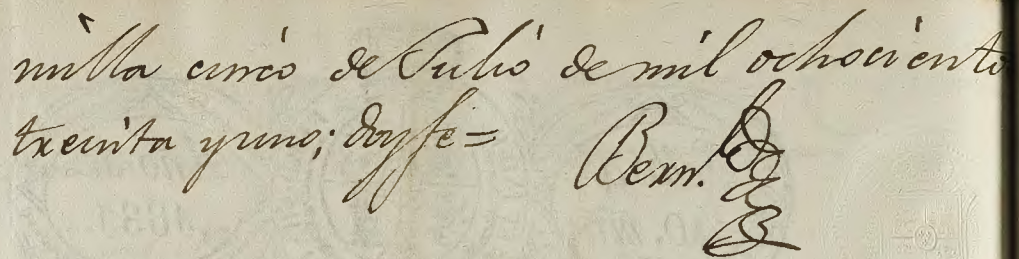 milla cinco de Julio de mil ochociento
treinta y uno; doy fe =
Bern.